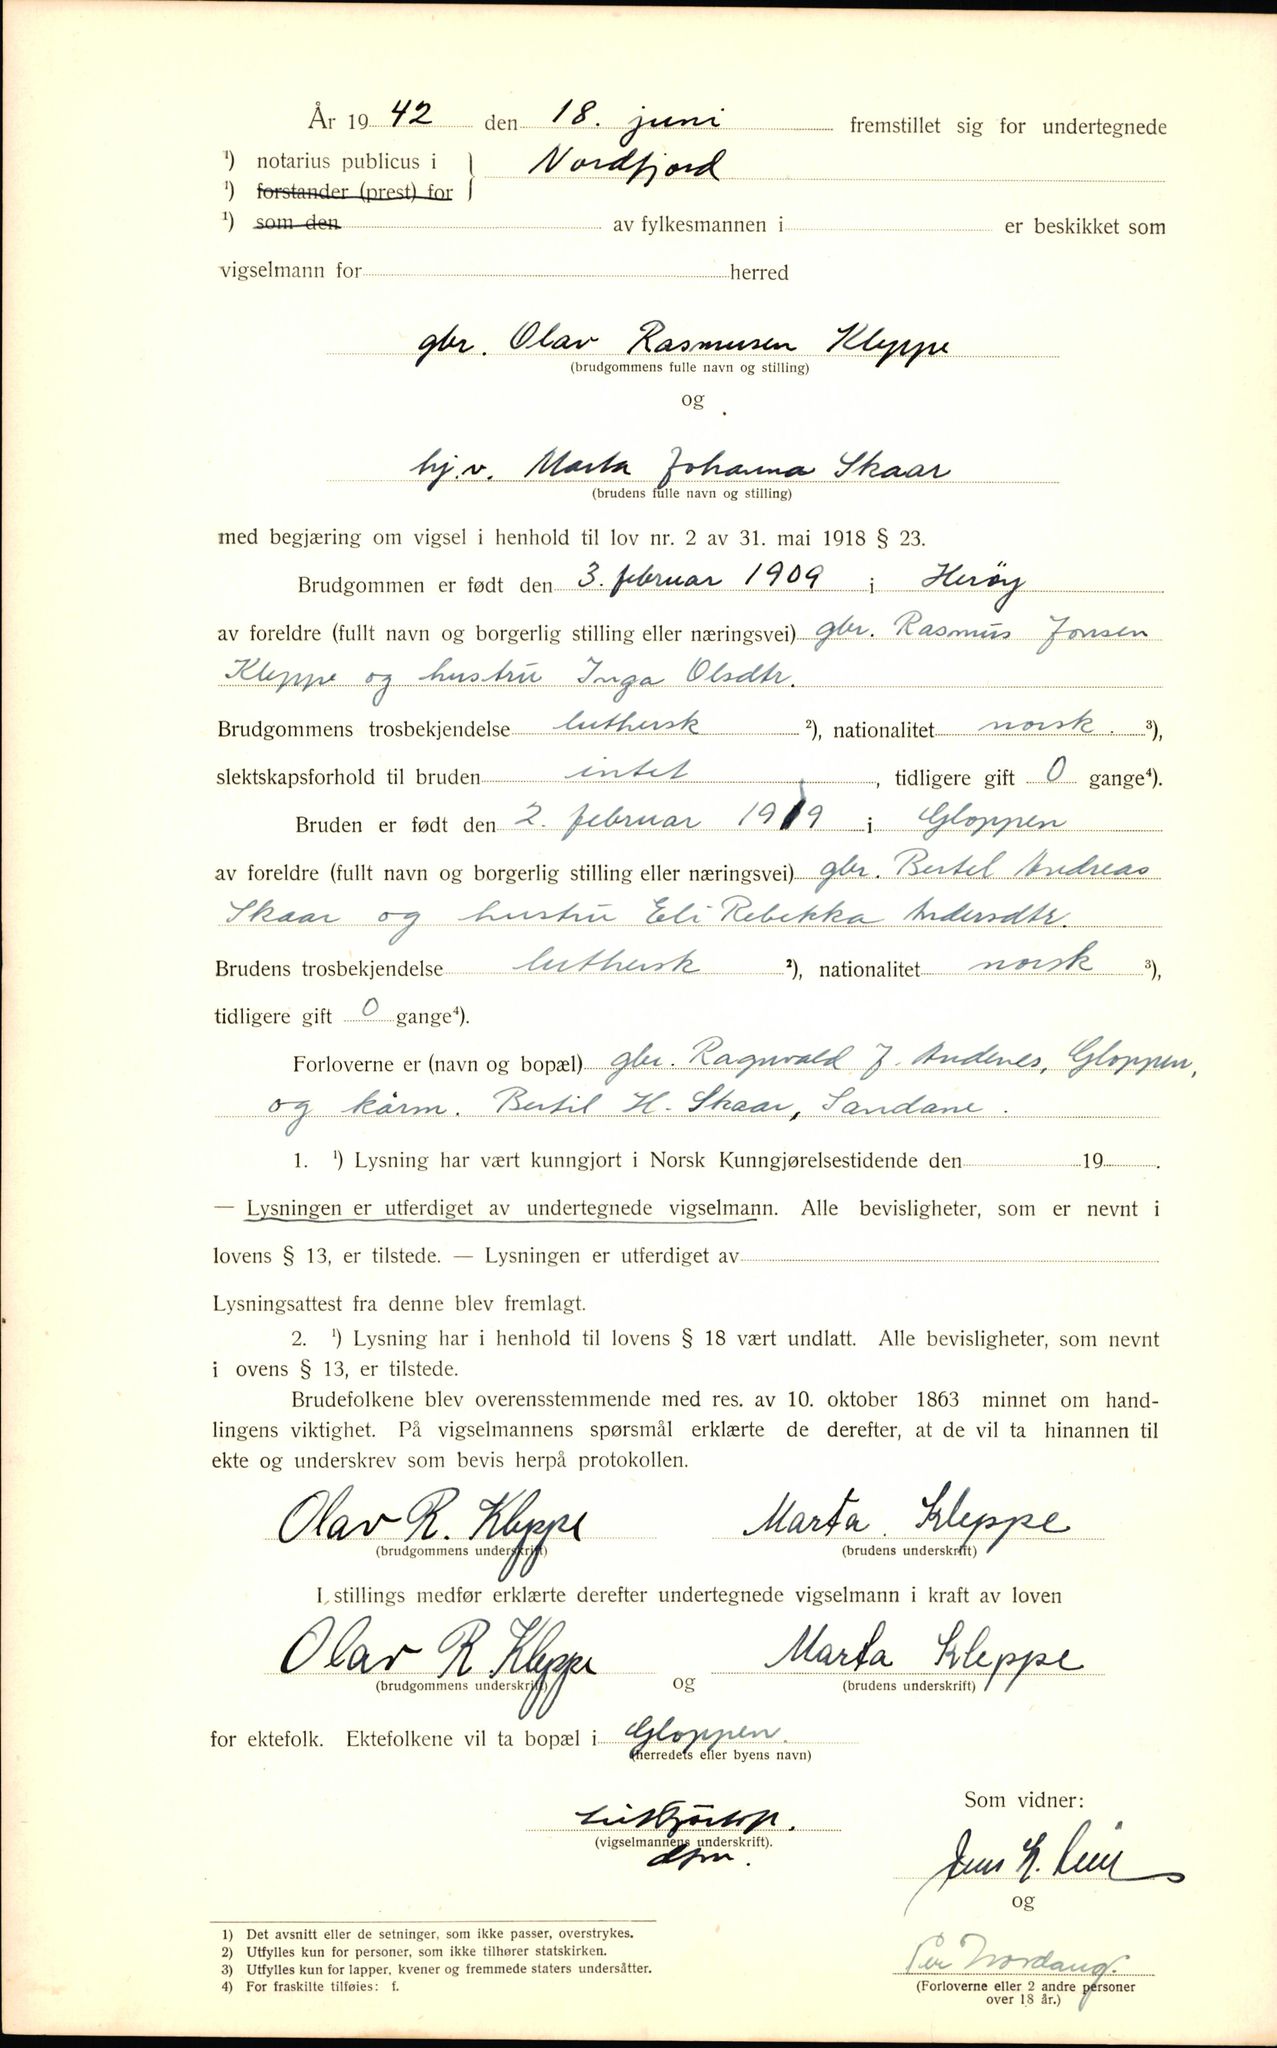 År 19 42 den 18. juni fremstillet sig for undertegnede
¹) notarius publicus i } Nordfjord
¹) forstander (prest) for
¹) som den av fylkesmannen i er beskikket som
vigselmann for herred
gbr. Olav Rasmusen Kleppe
(brudgommens fulle navn og stilling)
og
hj.v. Marta Johanna Skaar
(brudens fulle navn og stilling)
med begjæring om vigsel i henhold til lov nr. 2 av 31. mai 1918 § 23.
Brudgommen er født den 3. februar 1909 i Herøy
av foreldre (fullt navn og borgerlig stilling eller næringsvei) gbr. Rasmus Jonsen
Kleppe og hustru Inga Olsdtr.
Brudgommens trosbekjendelse luthersk ²), nationalitet norsk. ³),
slektskapsforhold til bruden intet, tidligere gift 0 gange⁴).
Bruden er født den 2. februar 1919 i Gloppen
av foreldre (fullt navn og borgerlig stilling eller næringsvei) gbr. Bertel Andreas
Skaar og hustru Eli Rebekka Andersdtr.
Brudens trosbekjendelse luthersk ²), nationalitet norsk ³),
tidligere gift 0 gange⁴).
Forloverne er (navn og bopæl) gbr. Ragnvald J. Andenes, Gloppen,
og kårm. Bertil H. Skaar, Sandane.
1. ¹) Lysning har vært kunngjort i Norsk Kunngjørelsestidende den 19 .
— Lysningen er utferdiget av undertegnede vigselmann. Alle bevisligheter, som er nevnt i
lovens § 13, er tilstede. — Lysningen er utferdiget av
Lysningsattest fra denne blev fremlagt.
2. ¹) Lysning har i henhold til lovens § 18 vært undlatt. Alle bevisligheter, som nevnt
i ovens § 13, er tilstede.
Brudefolkene blev overensstemmende med res. av 10. oktober 1863 minnet om hand-
lingens viktighet. På vigselmannens spørsmål erklærte de derefter, at de vil ta hinannen til
ekte og underskrev som bevis herpå protokollen.
Olav R. Kleppe Marta Kleppe
(brudgommens underskrift) (brudens underskrift)
I stillings medfør erklærte derefter undertegnede vigselmann i kraft av loven
Olav R Kleppe Marta Kleppe
(brudgommens underskrift) og (brudens underskrift)
for ektefolk. Ektefolkene vil ta bopæl i Gloppen.
(herredets eller byens navn)
Som vidner:
(vigselmannens underskrift).
dfm.
Jens
og
Per Nordaug.
(Forloverne eller 2 andre personer
over 18 år.)
1) Det avsnitt eller de setninger, som ikke passer, overstrykes.
2) Utfylles kun for personer, som ikke tilhører statskirken.
3) Utfylles kun for lapper, kvener og fremmede staters undersåtter.
4) For fraskilte tilføies: f.